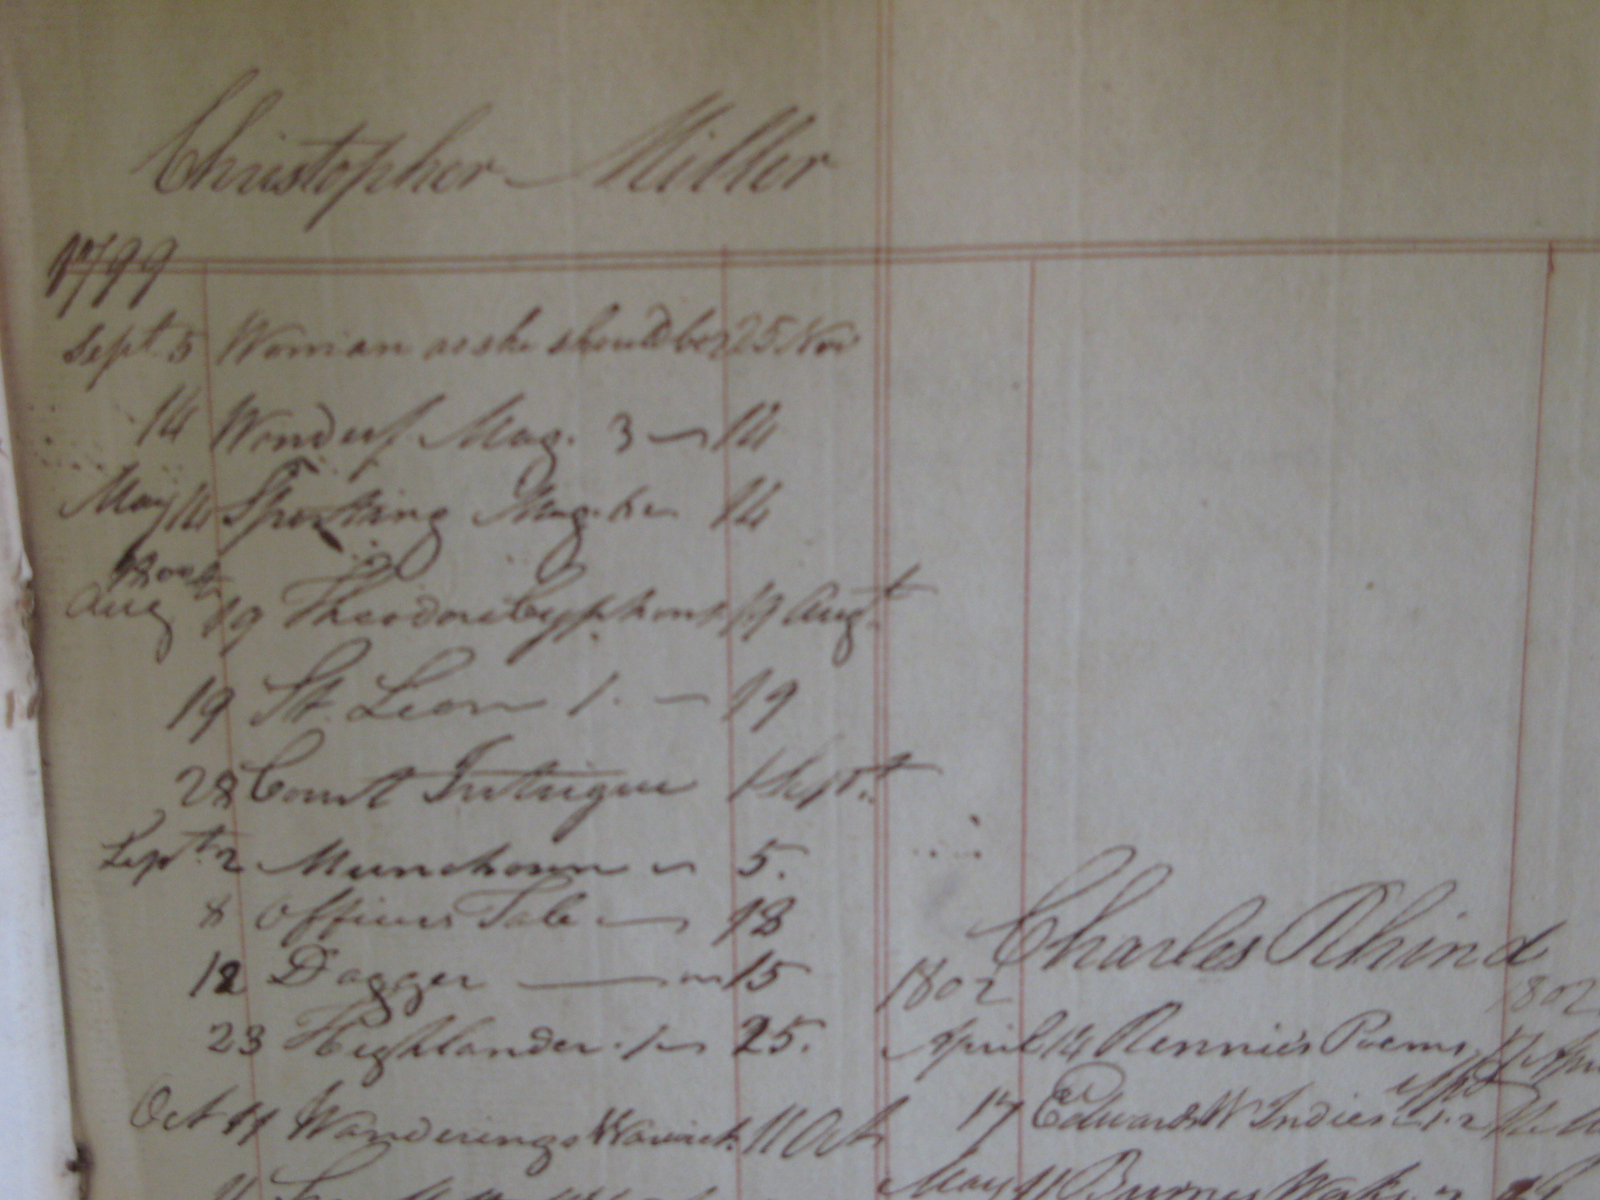 Christopher Miller
1799
Sept. 5 Woman as she should be 25 Nov
14 Wonderf. Mag. 3 14
May 14 Sporting Mag. 14
1800
Augt 19 Theodore Cyphon 19 Augt
19 St. Leon 1. 19
28 Count Intrigue 1 Sept.
Sept. 2 Munchown 5.
8 Officers Tale 18
12 Dagger 15
23 Highlander. 1 25.
Oct 11 Wanderings Warwick. 11 Oct
Charles Rhind
1802 1802
April 14 Rennie's Poems 17 Apri
17 Edwards W Indies 1. 2
May 11 Burnes